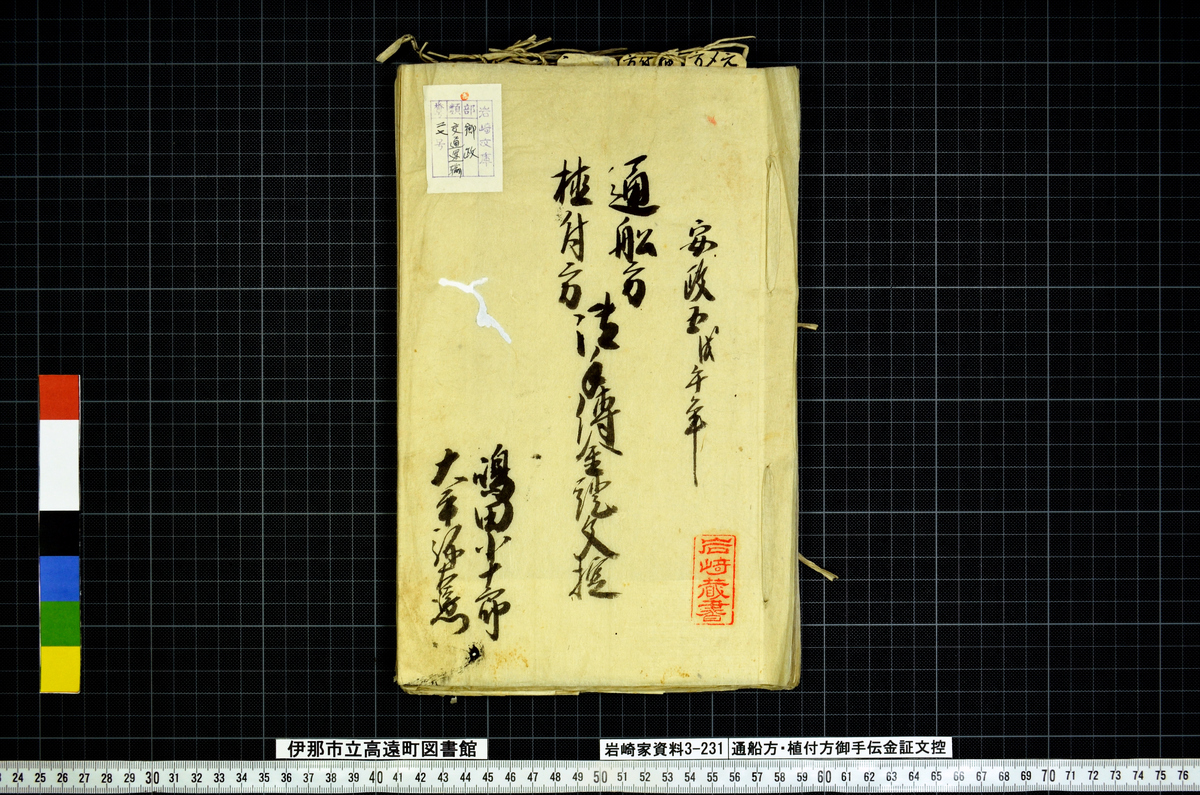 元〆方
安政五戊午年
通船方
植付方
御手傳金證文控
嶋田小十郎
岩崎文庫
部 郷政
類 交通運輸
岩崎蔵書
伊那市立高遠町図書館
岩崎家資料3-231 通船方・植付方御手伝金証文控
24 25 26 27 28 29 30 31 32 33 34 35 36 37 38 39 40 41 42 43 44 45 46 47 48 49 50 51 52 53 54 55 56 57 58 59 60 61 62 63 64 65 66 67 68 69 70 71 72 73 74 75 76